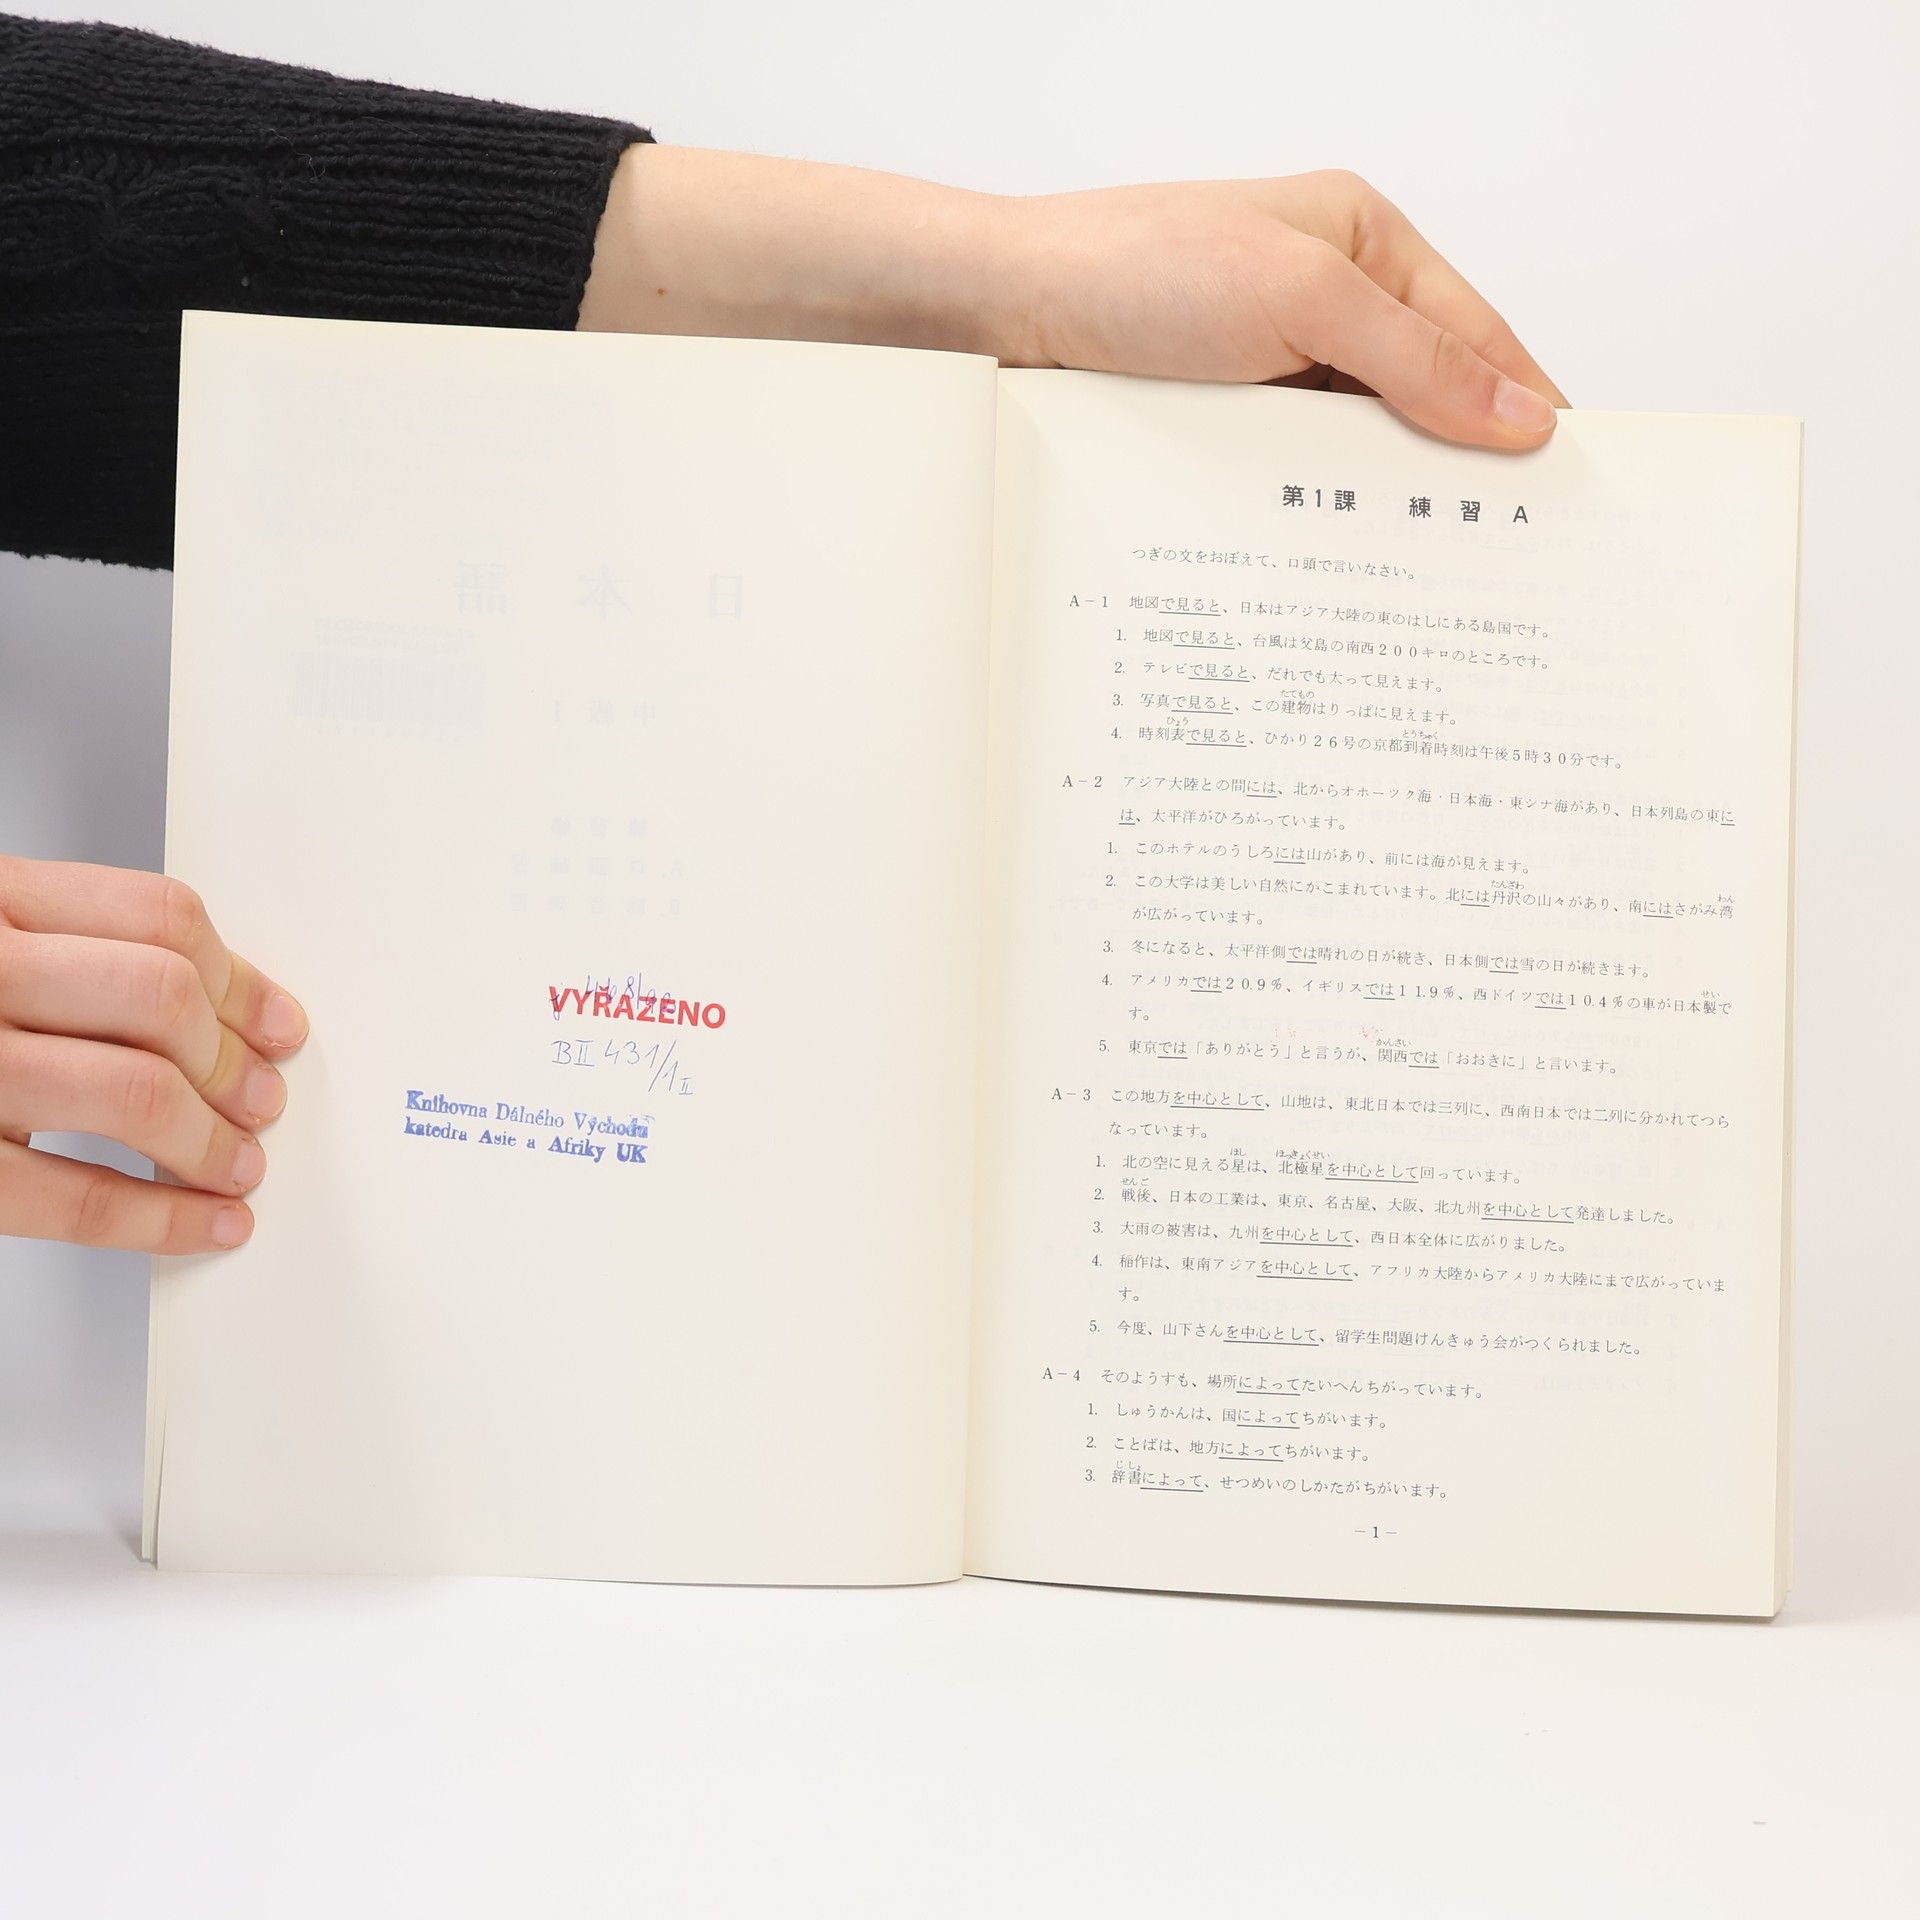 j 468/92
VYŘAZENO
BII 431/1 II
Knihovna Dálného Východu
katedra Asie a Afriky UK
第1課 練 習 A
つぎの文をおぼえて、口頭で言いなさい。
A－1 地図で見ると、日本はアジア大陸の東のはしにある島国です。
1. 地図で見ると、台風は父島の南西200キロのところです。
2. テレビで見ると、だれでも太って見えます。
たてもの
3. 写真で見ると、この建物はりっぱに見えます。
ひょう とうちゃく
4. 時刻表で見ると、ひかり26号の京都到着時刻は午後5時30分です。
A－2 アジア大陸との間には、北からオホーツク海・日本海・東シナ海があり、日本列島の東に
は、太平洋がひろがっています。
1. このホテルのうしろには山があり、前には海が見えます。
たんざわ わん
2. この大学は美しい自然にかこまれています。北には丹沢の山々があり、南にはさがみ湾
が広がっています。
3. 冬になると、太平洋側では晴れの日が続き、日本側では雪の日が続きます。
せい
4. アメリカでは20.9%、イギリスでは11.9%、西ドイツでは10.4%の車が日本製で
す。
かんさい
5. 東京では「ありがとう」と言うが、関西では「おおきに」と言います。
A－3 この地方を中心として、山地は、東北日本では三列に、西南日本では二列に分かれてつら
なっています。
ほし ほっきょくせい
1. 北の空に見える星は、北極星を中心として回っています。
せんご
2. 戦後、日本の工業は、東京、名古屋、大阪、北九州を中心として発達しました。
3. 大雨の被害は、九州を中心として、西日本全体に広がりました。
4. 稲作は、東南アジアを中心として、アフリカ大陸からアメリカ大陸にまで広がっていま
す。
5. 今度、山下さんを中心として、留学生問題けんきゅう会がつくられました。
A－4 そのようすも、場所によってたいへんちがっています。
1. しゅうかんは、国によってちがいます。
2. ことばは、地方によってちがいます。
じしょ
3. 辞書によって、せつめいのしかたがちがいます。
－1－